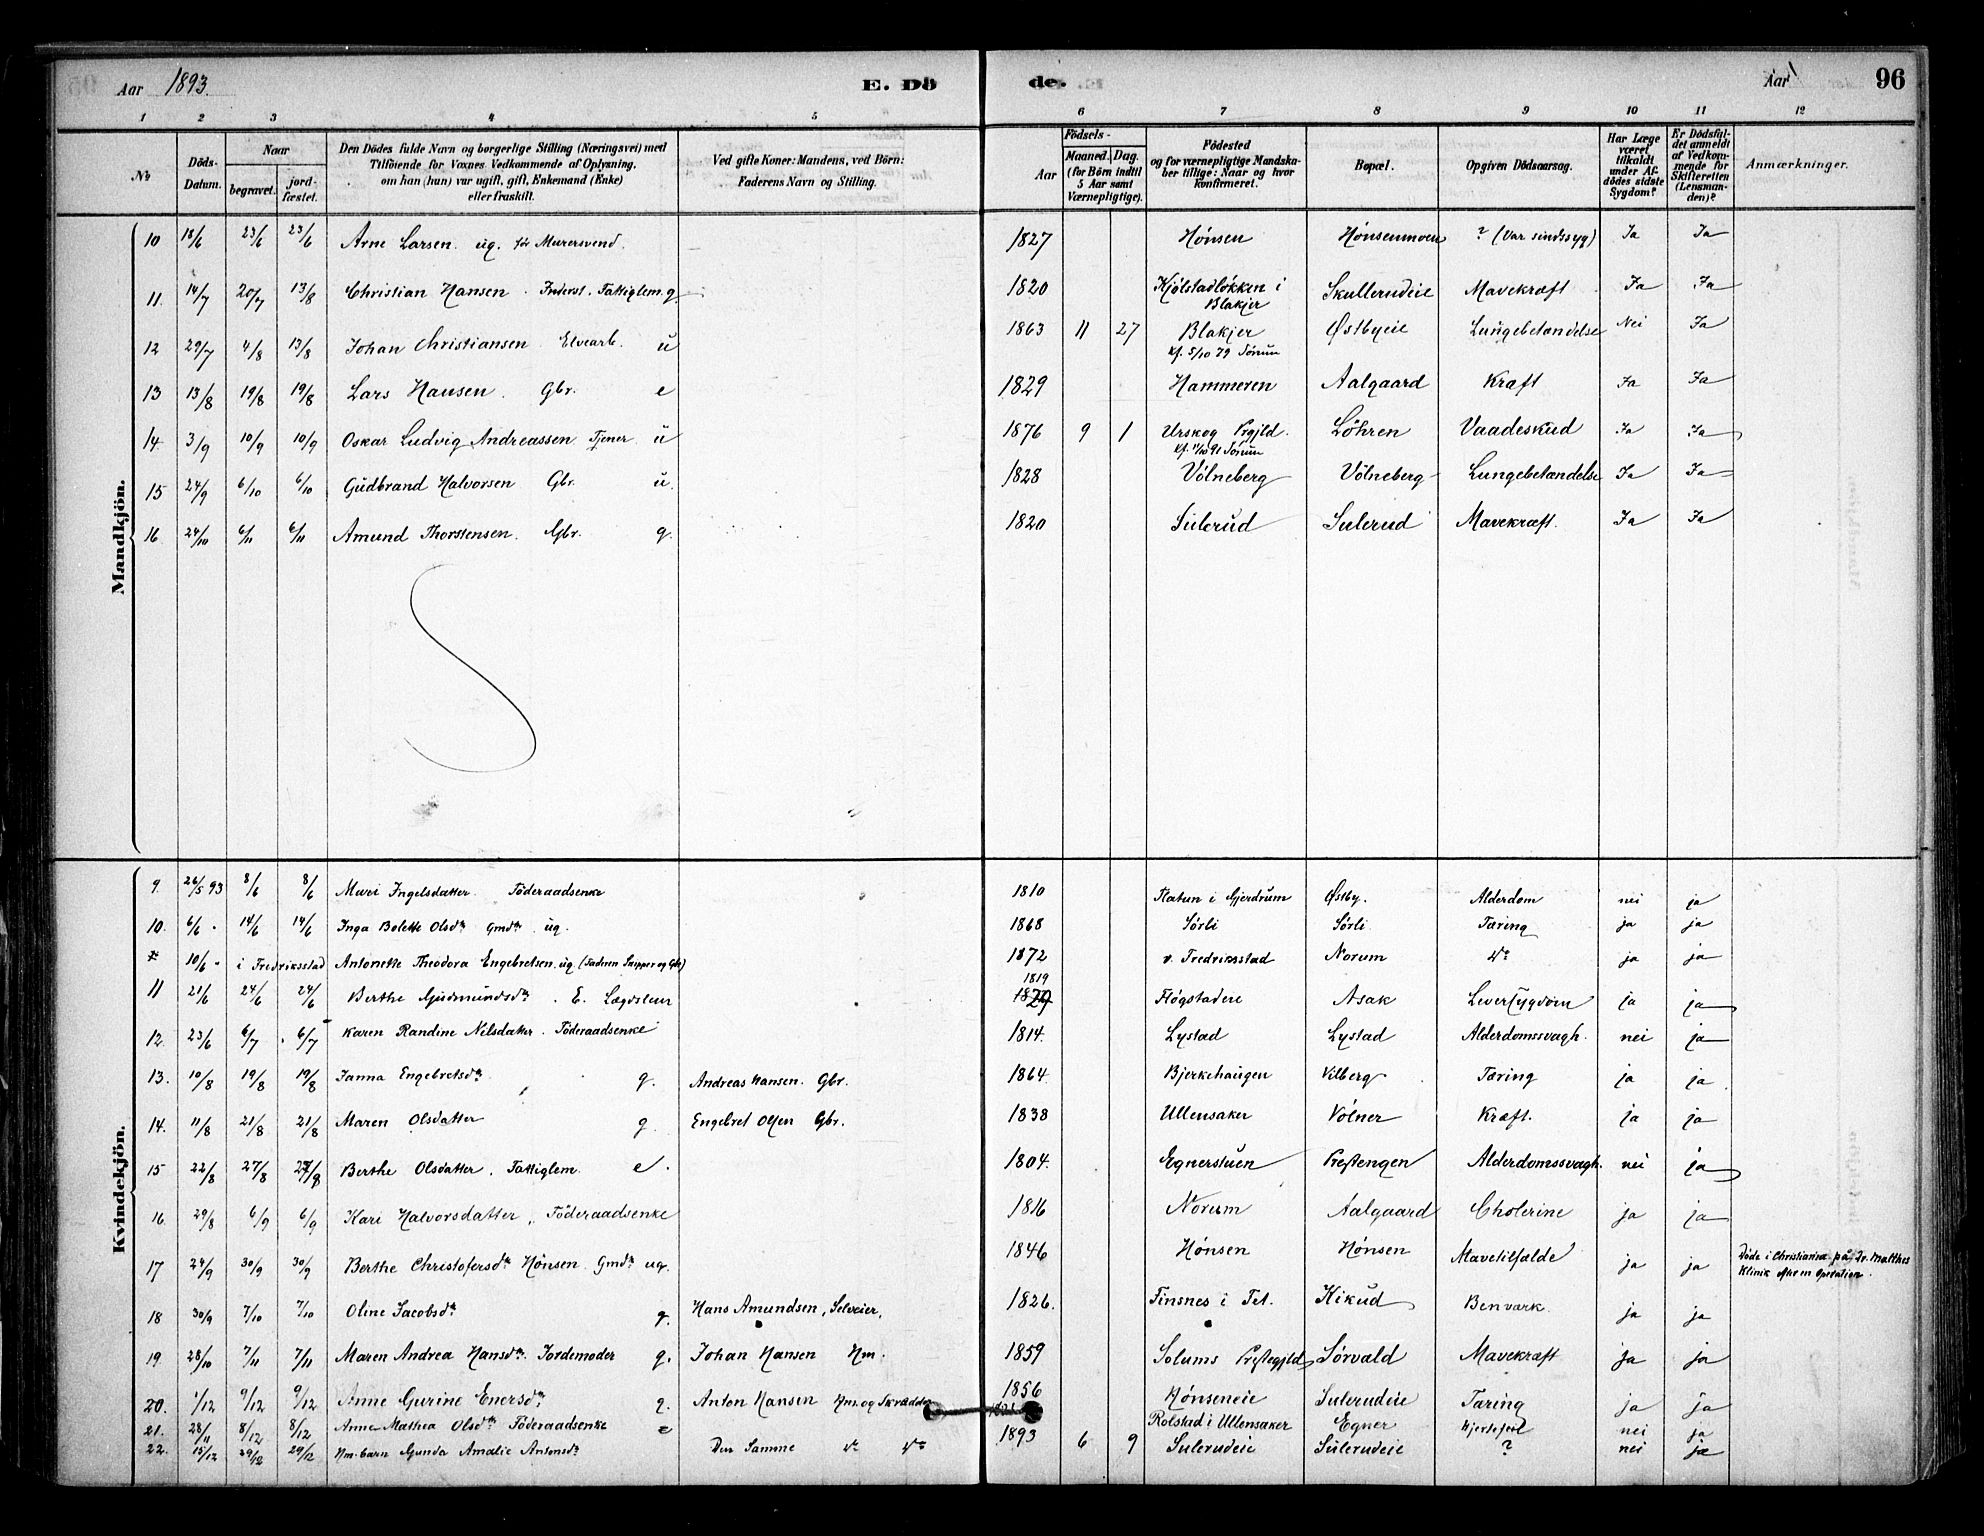 Aar 1893. E. Dö de. Aar 96
1 2 3 4 5 6 7 8 9 10 11 12
No Döds-Datum. Naar begravet. jordfæstet. Den Dödes fulde Navn og borgerlige Stilling (Næringsvei) med Tilföiende for Voxnes Vedkommende af Oplysning, om han (hun) var ugift, gift, Enkemand (Enke) eller fraskilt. Ved gifte Koner: Mandens, ved Börn: Faderens Navn og Stilling. Aar Födsels- Maaned. Dag. (for Börn indtil 5 Aar samt Værnepligtige). Födested og for værnepligtige Mandskaber tillige: Naar og hvor konfirmeret. Bopæl. Opgiven Dödsaarsag. Har Læge været tilkaldt under Afdödes sidste Sygdom? Er Dödsfaldet anmeldt af Vedkommende for Skifteretten (Lensmanden)? Anmærkninger.
Mandkjön.
10 18/6 23/6 23/6 Arne Larsen. ug. før Murersvend. 1827 Hønsen Hønsenmoen ? (Var sindssyg) Ja Ja
11. 14/7 20/7 13/8 Christian Hansen. Inderst. Fattiglem. g 1820 Kjølstadløkken i Blakjer Skullerudeie Mavekræft Ja Ja
12 29/7 4/8 13/8 Johan Christiansen Elvearb. u 1863 11 27 Blakjer Kf. 5/10 79 Sørum Østbyeie Lungebetændelse Nei Ja
13 13/8 19/8 19/8 Lars Hansen. Gbr. e 1829 Hammeren Aalgaard Kræft Ja Ja
14. 3/9 10/9 10/9 Oskar Ludvig Andreassen Tjener u 1876 9 1 Urskog Prgjld. Kf. 11/10 91 Sørum Löhren Vaadeskud Ja Ja
15 24/9 6/10 6/10 Gudbrand Halvorsen Gbr. u. 1828 Völneberg Völneberg Lungebetændelse Ja Ja
16 24/10 6/11 6/11 Amund Thorstensen. Gbr. g. 1820 Sulerud Sulerud Mavekræft. Ja Ja
Kvindekjön.
9. 26/5 93 8/6 8/6 Mari Ingelsdatter. Föderaadsenke 1810 Flatun i Gjerdrum Østby. Alderdom nei ja
10. 6/6 - 14/6 14/6 Inga Bolette Olsdtr Gmdtr ug. 1868 Sørli Sørli Tæring ja ja
10/6 - i Fredriksstad Antonette Theodora Engebretsen ug. (Fadren Skipper og Gbr) 1872 v. Fredriksstad Norum do ja ja
11 21/6 24/6 24/6 Berthe Gudmundsdtr. E. Lægdslem 1819 1829 Fløgstadeie Asak Leversygdom ja ja
12. 23/6 6/7 6/7 Karen Randine Nilsdatter. Föderaadsenke 1814. Lystad Lystad Alderdomssvagh. nei ja
13. 10/8 19/8 19/8 Janna Engebretsdtr g. Andreas Hansen. Gbr. 1864 Bjerkehaugen Vilberg Tæring ja ja
14. 11/8 21/8 21/8 Maren Olsdatter g. Engebret Olsen Gbr. 1838 Ullensaker Völner Kræft. ja ja
15 22/8 27/8 27/8 Berthe Olsdatter. Fattiglem. e. 1804. Egnerstuen Prestengen Alderdomssvagh. nei ja
16. 29/8 6/9 6/9 Kari Halvorsdatter. Föderaadsenke 1816 Norum Aalgaard Cholerine ja ja
17 24/9 30/9 30/9 Berthe Christofersdtr Hønsen Gmdtr ug. 1846 Hønsen Hønsen Mavetilfælde ja ja Døde i Christiania på Dr. Malthes Klinik efter en Operation.
18 30/9 7/10 7/10 Oline Jacobsdtr g. Hans Amundsen, Selveier. 1826. Finsnes i Fet. Kikud Benværk. ja ja
19. 28/10 7/11 7/11 Maren Andrea Hansdtr. Jordemoder g. Johan Hansen Hm. 1859 Solums Prestegjeld Sørvald Mavekræft ja ja
20. 1/12 9/12 9/12 Anne Gurine Enersdtr g. Anton Hansen Hm. og Skrædder 1856 Hønseneie Sulerudeie Tæring ja ja
21. 28/11 8/12 8/12 Anne Mathea Olsdtr Föderaadsenke e Rolstad i Ullensaker Egner Hjertefeil nei ja
22. 15/12 29/12 29/12 Hm-barn Gunda Amalie Antonsdtr Den Samme do do 1893 6 9 Sulerudeie Sulerudeie ? nei ja